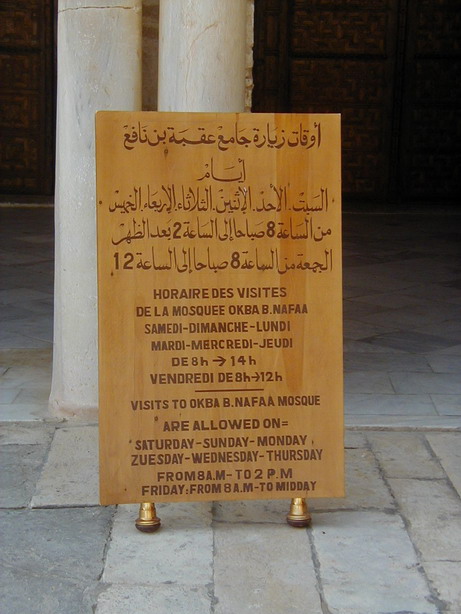 أوقات زيارة جامع عقبة بن نافع
أيام
السبت الأحد الإثنين الثلاثاء الإربعاء الخميس
من الساعة 8 صباحا إلى الساعة 2 بعد الظهر
الجمعة من الساعة 8 صباحا إلى الساعة 12
HORAIRE DES VISITES
DE LA MOSQUEE OKBA B.NAFAA
SAMEDI-DIMANCHE-LUNDI
MARDI-MERCREDI-JEUDI
DE 8h → 14h
VENDREDI DE 8h→12h
VISITS TO OKBA B.NAFAA MOSQUE
ARE ALLOWED ON=
SATURDAY-SUNDAY-MONDAY,
ZUESDAY-WEDNESDAY-THURSDAY
FROM 8 A.M-TO 2 P.M
FRIDAY: FROM 8 A.M-TO MIDDAY